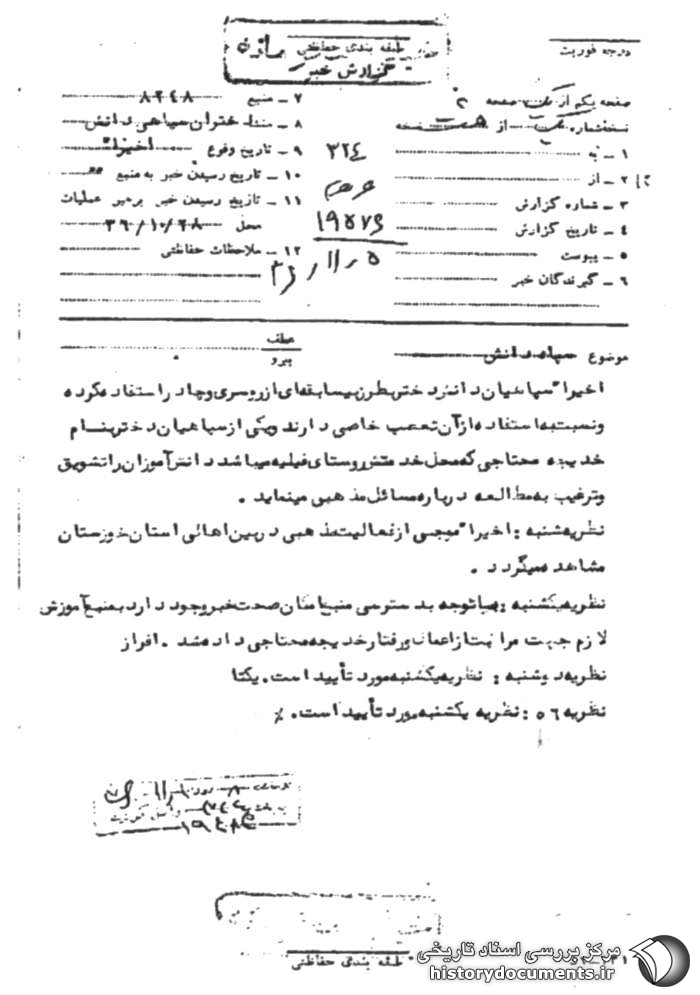 درجه فوریت
طبقه بندی حفاظتی
گزارش خبر
صفحه یکم از یک صفحه
نسخه شماره یک از هشت نسخه
۱ ـ به
۲ ـ از
۳ ـ شماره گزارش
۴ ـ تاریخ گزارش
۵ ـ پیوست
۶ ـ گیرندگان خبر
۳۲۴
۱۹۵۷۶
۵ ر ۱۱ ر ۳۶
۷ ـ منبع ۸۲۴۸
۸ ـ منشاء عنوان سپاهی دانش
۹ ـ تاریخ وقوع اخیراً
۱۰ ـ تاریخ رسیدن خبر به منبع
۱۱ ـ تاریخ رسیدن خبر به رهبر عملیات
محل ۳۶/۱۰/۲۸
۱۲ ـ ملاحظات حفاظتی
موضوع سپاه دانش
عطف
پیرو
اخیراً سپاهیان دانش دختر بطرز بیسابقه‌ای از روسری و چادر استفاده کرده
و نسبت به استفاده از آن تعصب خاصی دارند و یکی از سپاهیان دختر بنام
خدیجه محتاجی که محل خدمتش روستای فیلیه میباشد دانش آموزان را تشویق
و ترغیب به مطالعه درباره مسائل مذهبی مینماید .
نظریه شنبه : اخیراً موجی از فعالیت مذهبی در بین اهالی استان خوزستان
مشاهده میگردد .
نظریه یکشنبه : با توجه به دسترسی منبع امکان صحت خبر وجود دارد به منبع آموزش
لازم جهت مراقبت از اعمال و رفتار خدیجه محتاجی داده شد . افراز
نظریه دوشنبه : نظریه یکشنبه مورد تأیید است . یکتا
نظریه ۵۶ : نظریه یکشنبه مورد تأیید است . ٪
طبقه بندی حفاظتی
مرکز بررسی اسناد تاریخی
historydocuments.ir